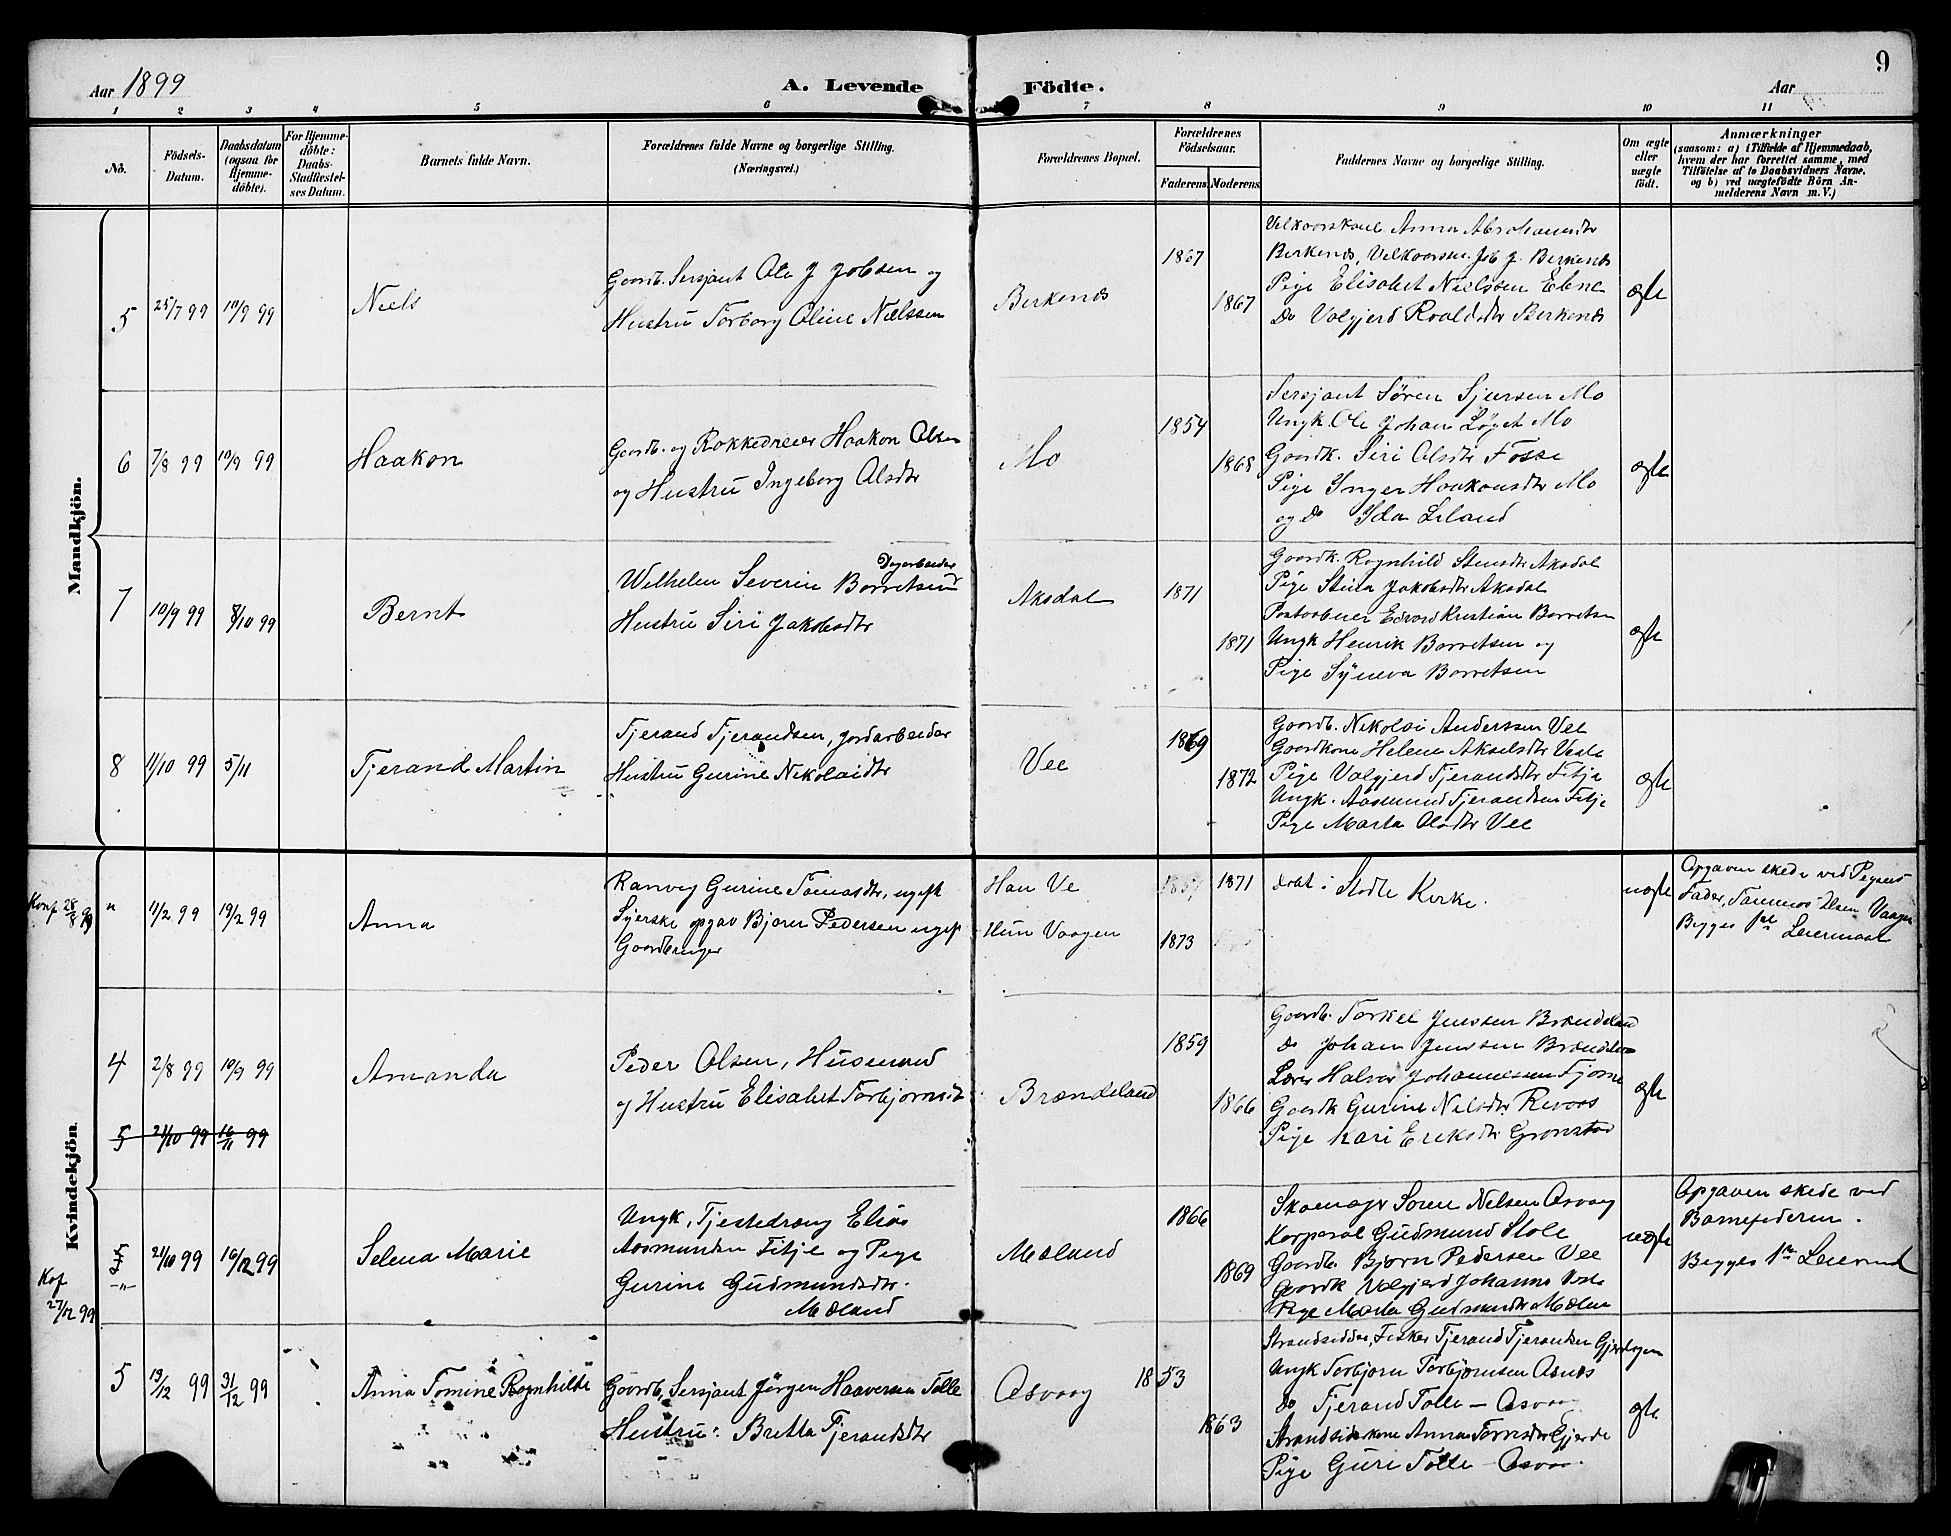 9
Aar 1899
A. Levende Födte.
Aar
1 2 3 4 5 6 7 8 9 10 11
No.
Födsels-Datum.
Daabsdatum (ogsaa för Hjemme-döbte).
For Hjemme-döbte: Daabs-Stadfæstel-ses Datum.
Barnets fulde Navn.
Forældrenes fulde Navne og borgerlige Stilling.
(Næringsvei.)
Forældrenes Bopæl.
Forældrenes Födselsaar.
Faderens Moderens
Faddernes Navne og borgerlige Stilling.
Om ægte eller uægte födt.
Anmærkninger
(saasom: a) i Tilfælde af Hjemmedaab, hvem der har forrettet samme, med Tilföielse af to Daabsvidners Navne, og b) ved uægtefödte Börn Anmelderens Navn m. V.)
Mandkjön.
5 25/7 99 10/9 99
Niels
Gaardb. Sersjant Ole J Jobsen og
Hustru Torborg Oline Nielssen
Birkenæs
1867
1867
Velkaarskone Anna Abrahamsdtr
Birkenæs, Velkaarsm. Job J. Birkenæs
Pige Elisabet Nielssen Ebne
Do Valgjerd Roaldsdtr Birkenæs
ægte
6 7/8 99 10/9 99
Haakon
Gaardb. og Rokkedreier Haakon Olsen
og Hustru Ingeborg Olsdtr
Mo
1854
1868
Sersjant Sören Sjursen Mo
Ungk. Ole Johan Mo
Gaardk. Siri Olsdtr Fosse
Pige Inger Haakonsdtr Mo
og Do Ida Leland
ægte
7 10/9 99 8/10 99
Bernt
Dagarbeider
Wilhelm Severin Borretsen
Hustru Siri Jakobsdtr
Aksdal
1871
1871
Gaardk. Ragnhild Stensdtr Aksdal
Pige Stina Jakobsdtr Aksdal
Postaabner Edvard Kristian Borretsen
Ungk Henrik Borretsen og
Pige Syneva Borretsen
ægte
8 11/10 99 5/11
Tjerand Martin
Tjerand Tjerandsen, jordarbeider
Hustru Gurine Nikolaidtr
Vee
1869
1872
Gaardb. Nikolai Anderssen Vee
Gaardkone Helene Akselsdtr Vesle
Pige Valgjerd Tjerandsdtr Fitje
Ungk. Aasmund Tjerandsen Fitje
Pige Marta Olsdtr Vee
ægte
Kvindekjön.
Konf 28/8 99
" 11/2 99 19/2 99
Anna
Ranveg Gurine Tomasdtr, ugift
Syerske opgav Bjørn Pedersen ugift
Gaardbruger
Han Ve
Hun Vaagen
1871
1873
døbt i Stodle Kirke.
uægte
Opgaven skede ved Pigens
Fader, Tommas Olsen Vaagen
Begges 1ste Leiermaal
4 2/8 99 10/9 99
Amanda
Peder Olsen, Husmand
og Hustru Elisabet Torbjørnsdt
Brændeland
1859
1866
Gaardb. Torkel Jenssen Brændeland
Do Johan Jenssen Brændeland
Lærer Halvor Johannessen Fjørne
Gaardk Gurine Nelsdtr Revaas
Pige Kari Eriksdtr Grønstad
ægte
5 21/10 99 16/11 99
Kof 27/12 99
" 21/10 99 10/12 99
Selena Marie
Ungk, Tjestedreng Elias
Aasmundsen Fitje og Pige
Gurine Gudmundsdtr.
Mæland
Mæland
1866
1869
Skomager Soren Nelsen Osvaag
Korporal Gudmund Stole
Gaardb. Bjørn Pedersen Vee
Gaardk Valgjerd Johanns Vesle
Pige Marta Gudmundsdtr Mælan
uægte
Opgaven skede ved
Barnefederen.
Begges 1ste Leiermaal
5 13/12 99 31/12 99
Anna Tomine Ragnhilde
Gaardb, Sersjant Jørgen Haaversen Tolle
Hustru: Britta Tjerandsdtr
Osvaag
1853
1863
Strandsidder, Fisker Tjerand Tjerandsen
Ungk Torbjørn Torbjørnsen Osnæs
Do Tjerand Tolle – Osvaag
Strandsidderkone Anna Gjerde
Pige Guri Tolle – Osvaa.
ægte